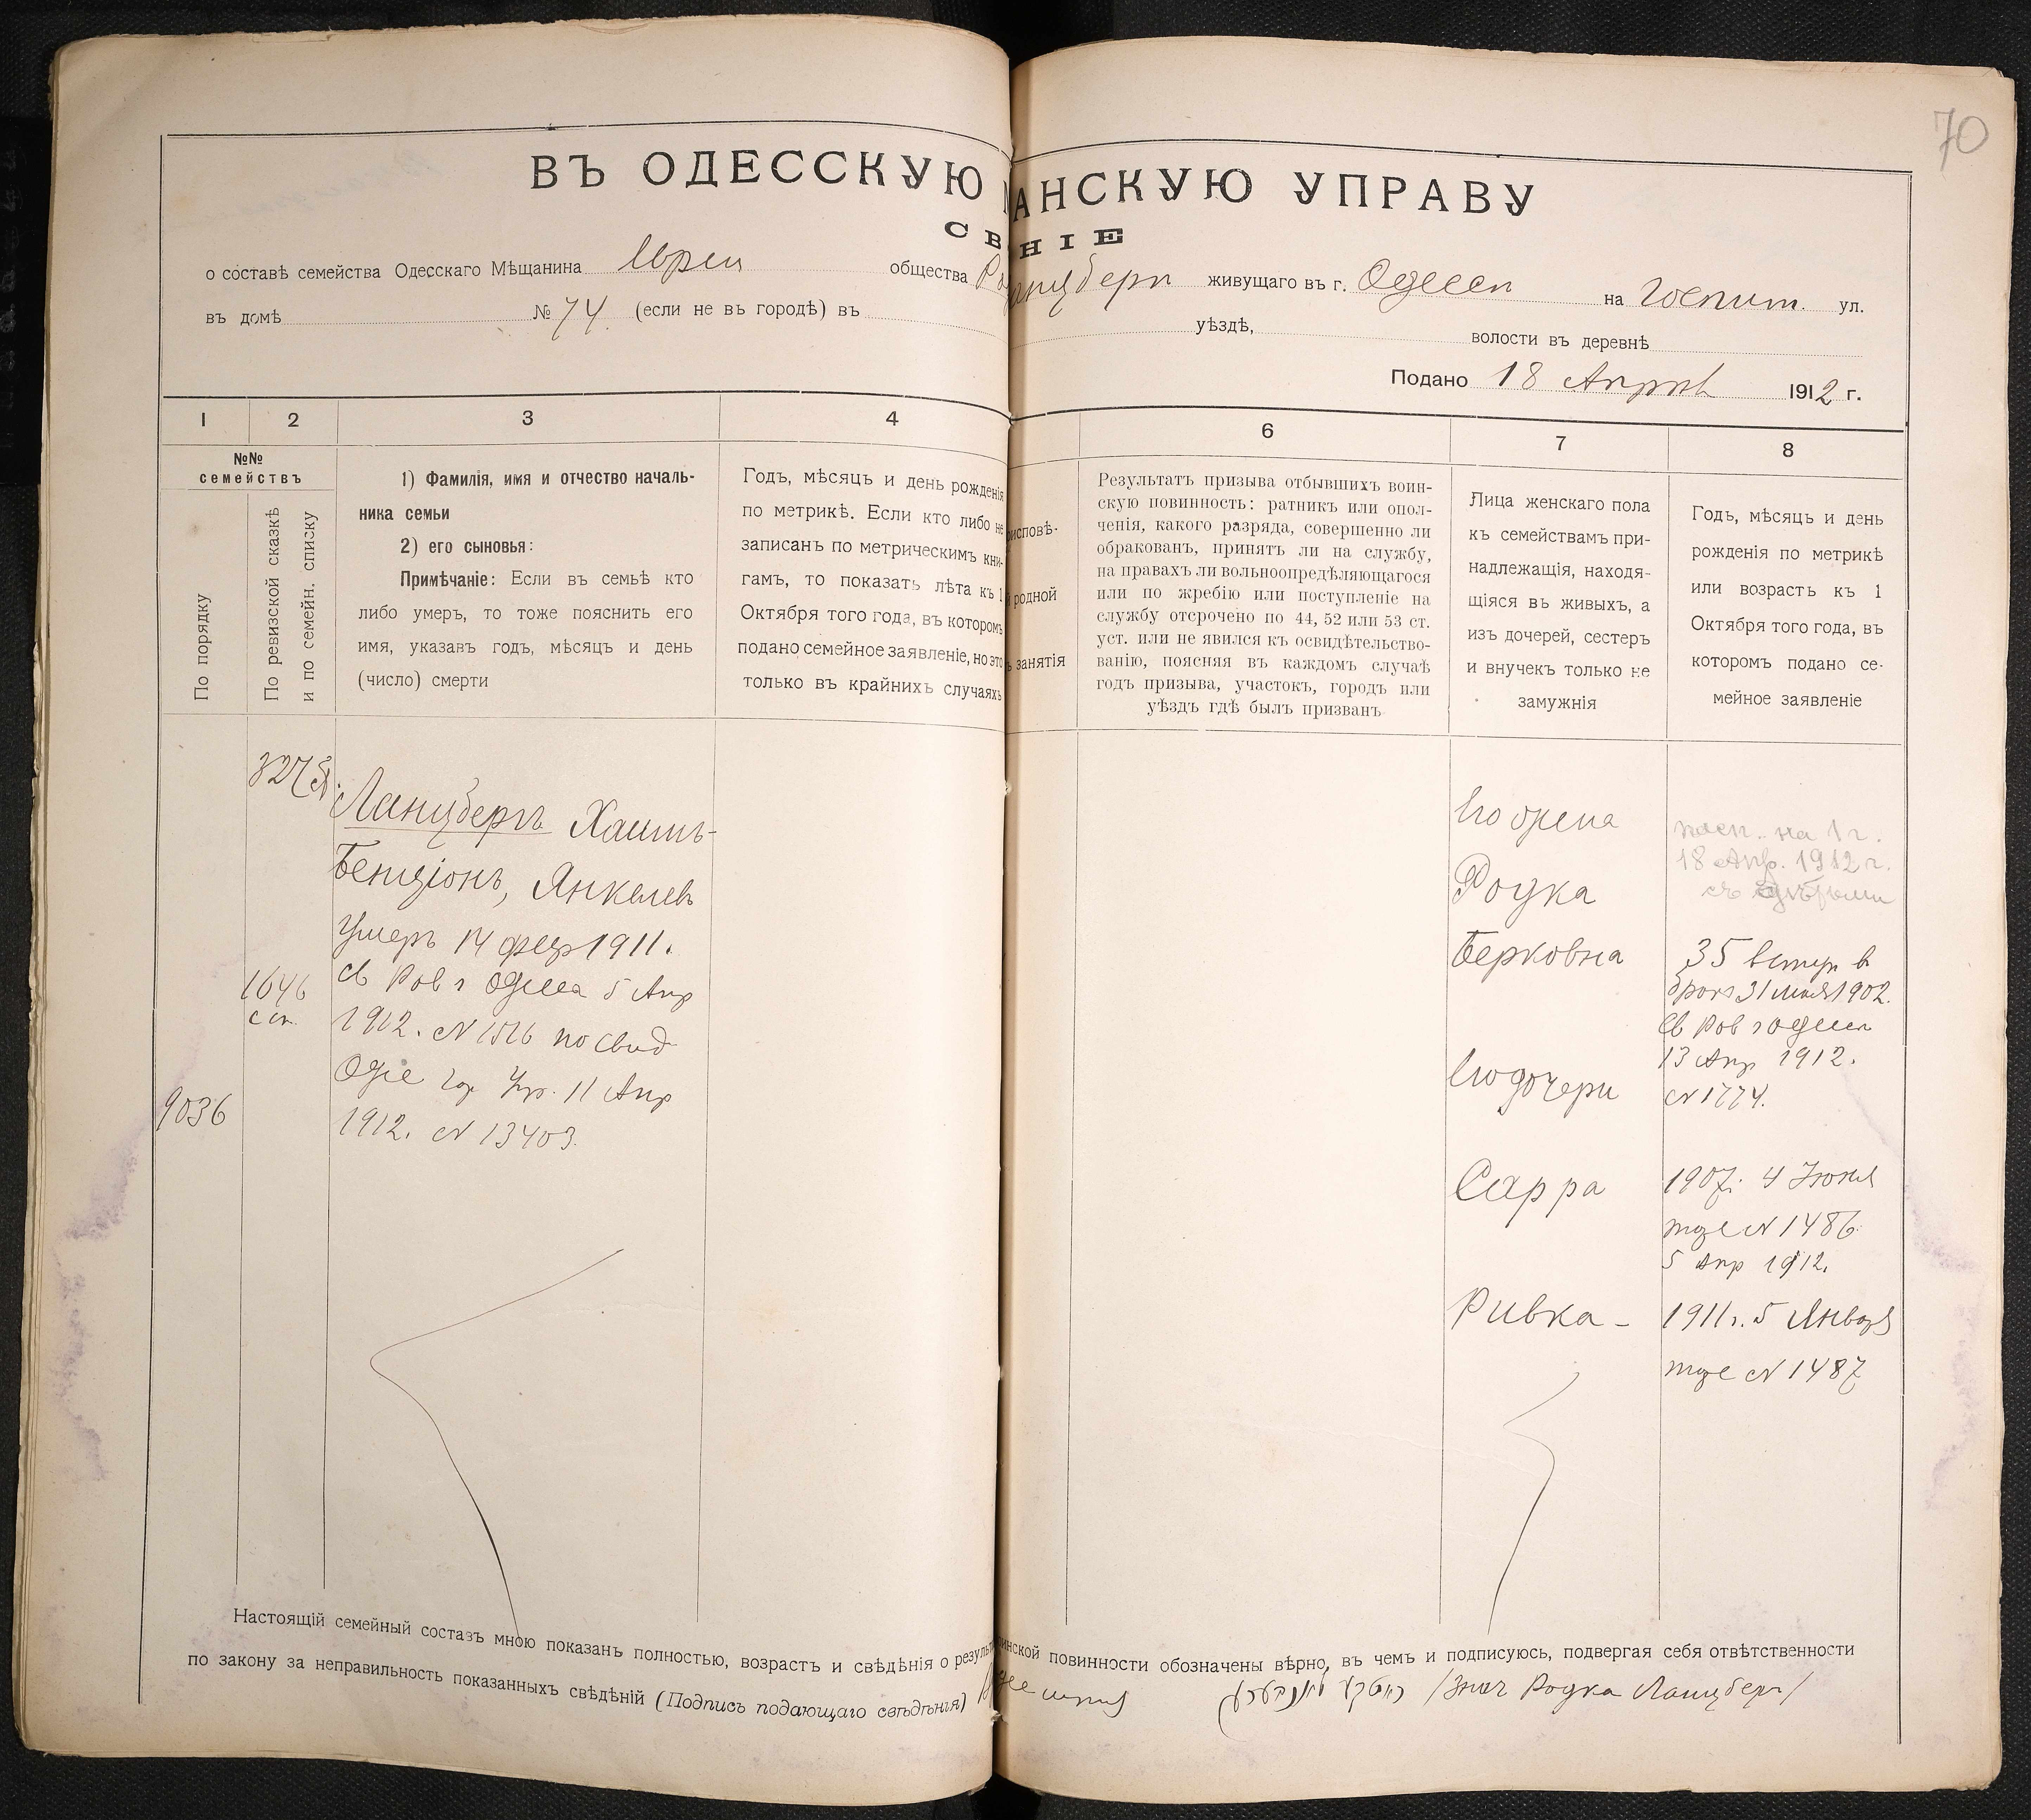 70
ВЪ ОДЕССКУЮ АНСКУЮ УПРАВУ
СВ НІЕ
о составѣ семейства Одесскаго Мѣщанина Еврея общества анцбергъ живущаго въ г. Одессѣ на Госпит. ул.
въ домѣ № 74 (если не въ городѣ) въ уѣздѣ, волости въ деревнѣ
Подано 18 Апрѣля 1912 г.
1 2 3 4 6 7 8
№№
семействъ
По порядку
По ревизской сказкѣ
и по семейн. списку
1) Фамилія, имя и отчество началь-
ника семьи
2) его сыновья:
Примѣчаніе: Если въ семьѣ кто
либо умеръ, то тоже пояснить его
имя, указавъ годъ, мѣсяцъ и день
(число) смерти
Годъ, мѣсяцъ и день рожденія
по метрикѣ. Если кто либо не
записанъ по метрическимъ кни-
гамъ, то показать лѣта къ 1
Октября того года, въ которомъ
подано семейное заявленіе, но это
только въ крайнихъ случаяхъ
рисповѣ-
й родной
ъ занятія
Результатъ призыва отбывшихъ воин-
скую повинность: ратникъ или опол-
ченія, какого разряда, совершенно ли
обракованъ, принятъ ли на службу,
на правахъ ли вольноопредѣляющагося
или по жребію или поступленіе на
службу отсрочено по 44, 52 или 53 ст.
уст. или не явился къ освидѣтельство-
ванію, поясняя въ каждомъ случаѣ
годъ призыва, участокъ, городъ или
уѣздъ гдѣ былъ призванъ
Лица женскаго пола
къ семействамъ при-
надлежащія, находя-
щіяся въ живыхъ, а
изъ дочерей, сестеръ
и внучекъ только не
замужнія
Годъ, мѣсяцъ и день
рожденія по метрикѣ
или возрастъ къ 1
Октября того года, въ
которомъ подано се-
мейное заявленіе
Ланцбергъ Хаимъ-
Бенціонъ, Янкелев
Умеръ 14 февр 1911.
св Рав г Одесса 5 Апр
1912. N 1516 по свид
Одес гор Упр. 11 Апр
1912. N 13403.
1646
9036
Его жена
Родка
Берковна
Его дочери
Сарра
Ривка -
пасп. на 1 г.
18 Апр. 1912 г.
съ дѣтьми
35 вступ в
бракъ 31 мая 1902.
Св Рав г Одесса
13 Апр 1912.
N 1774.
1907. 4 Іюня
тоже N 1486
5 Апр 1912.
1911 г. 5 Января
тоже N 1487
Настоящій семейный составъ мною показанъ полностью, возрастъ и свѣдѣнія о результ инской повинности обозначены вѣрно, въ чемъ и подписуюсь, подвергая себя отвѣтственности
по закону за неправильность показанныхъ свѣдѣній (Подпись подающаго свѣдѣнія) /знач Родка Ланцберг/